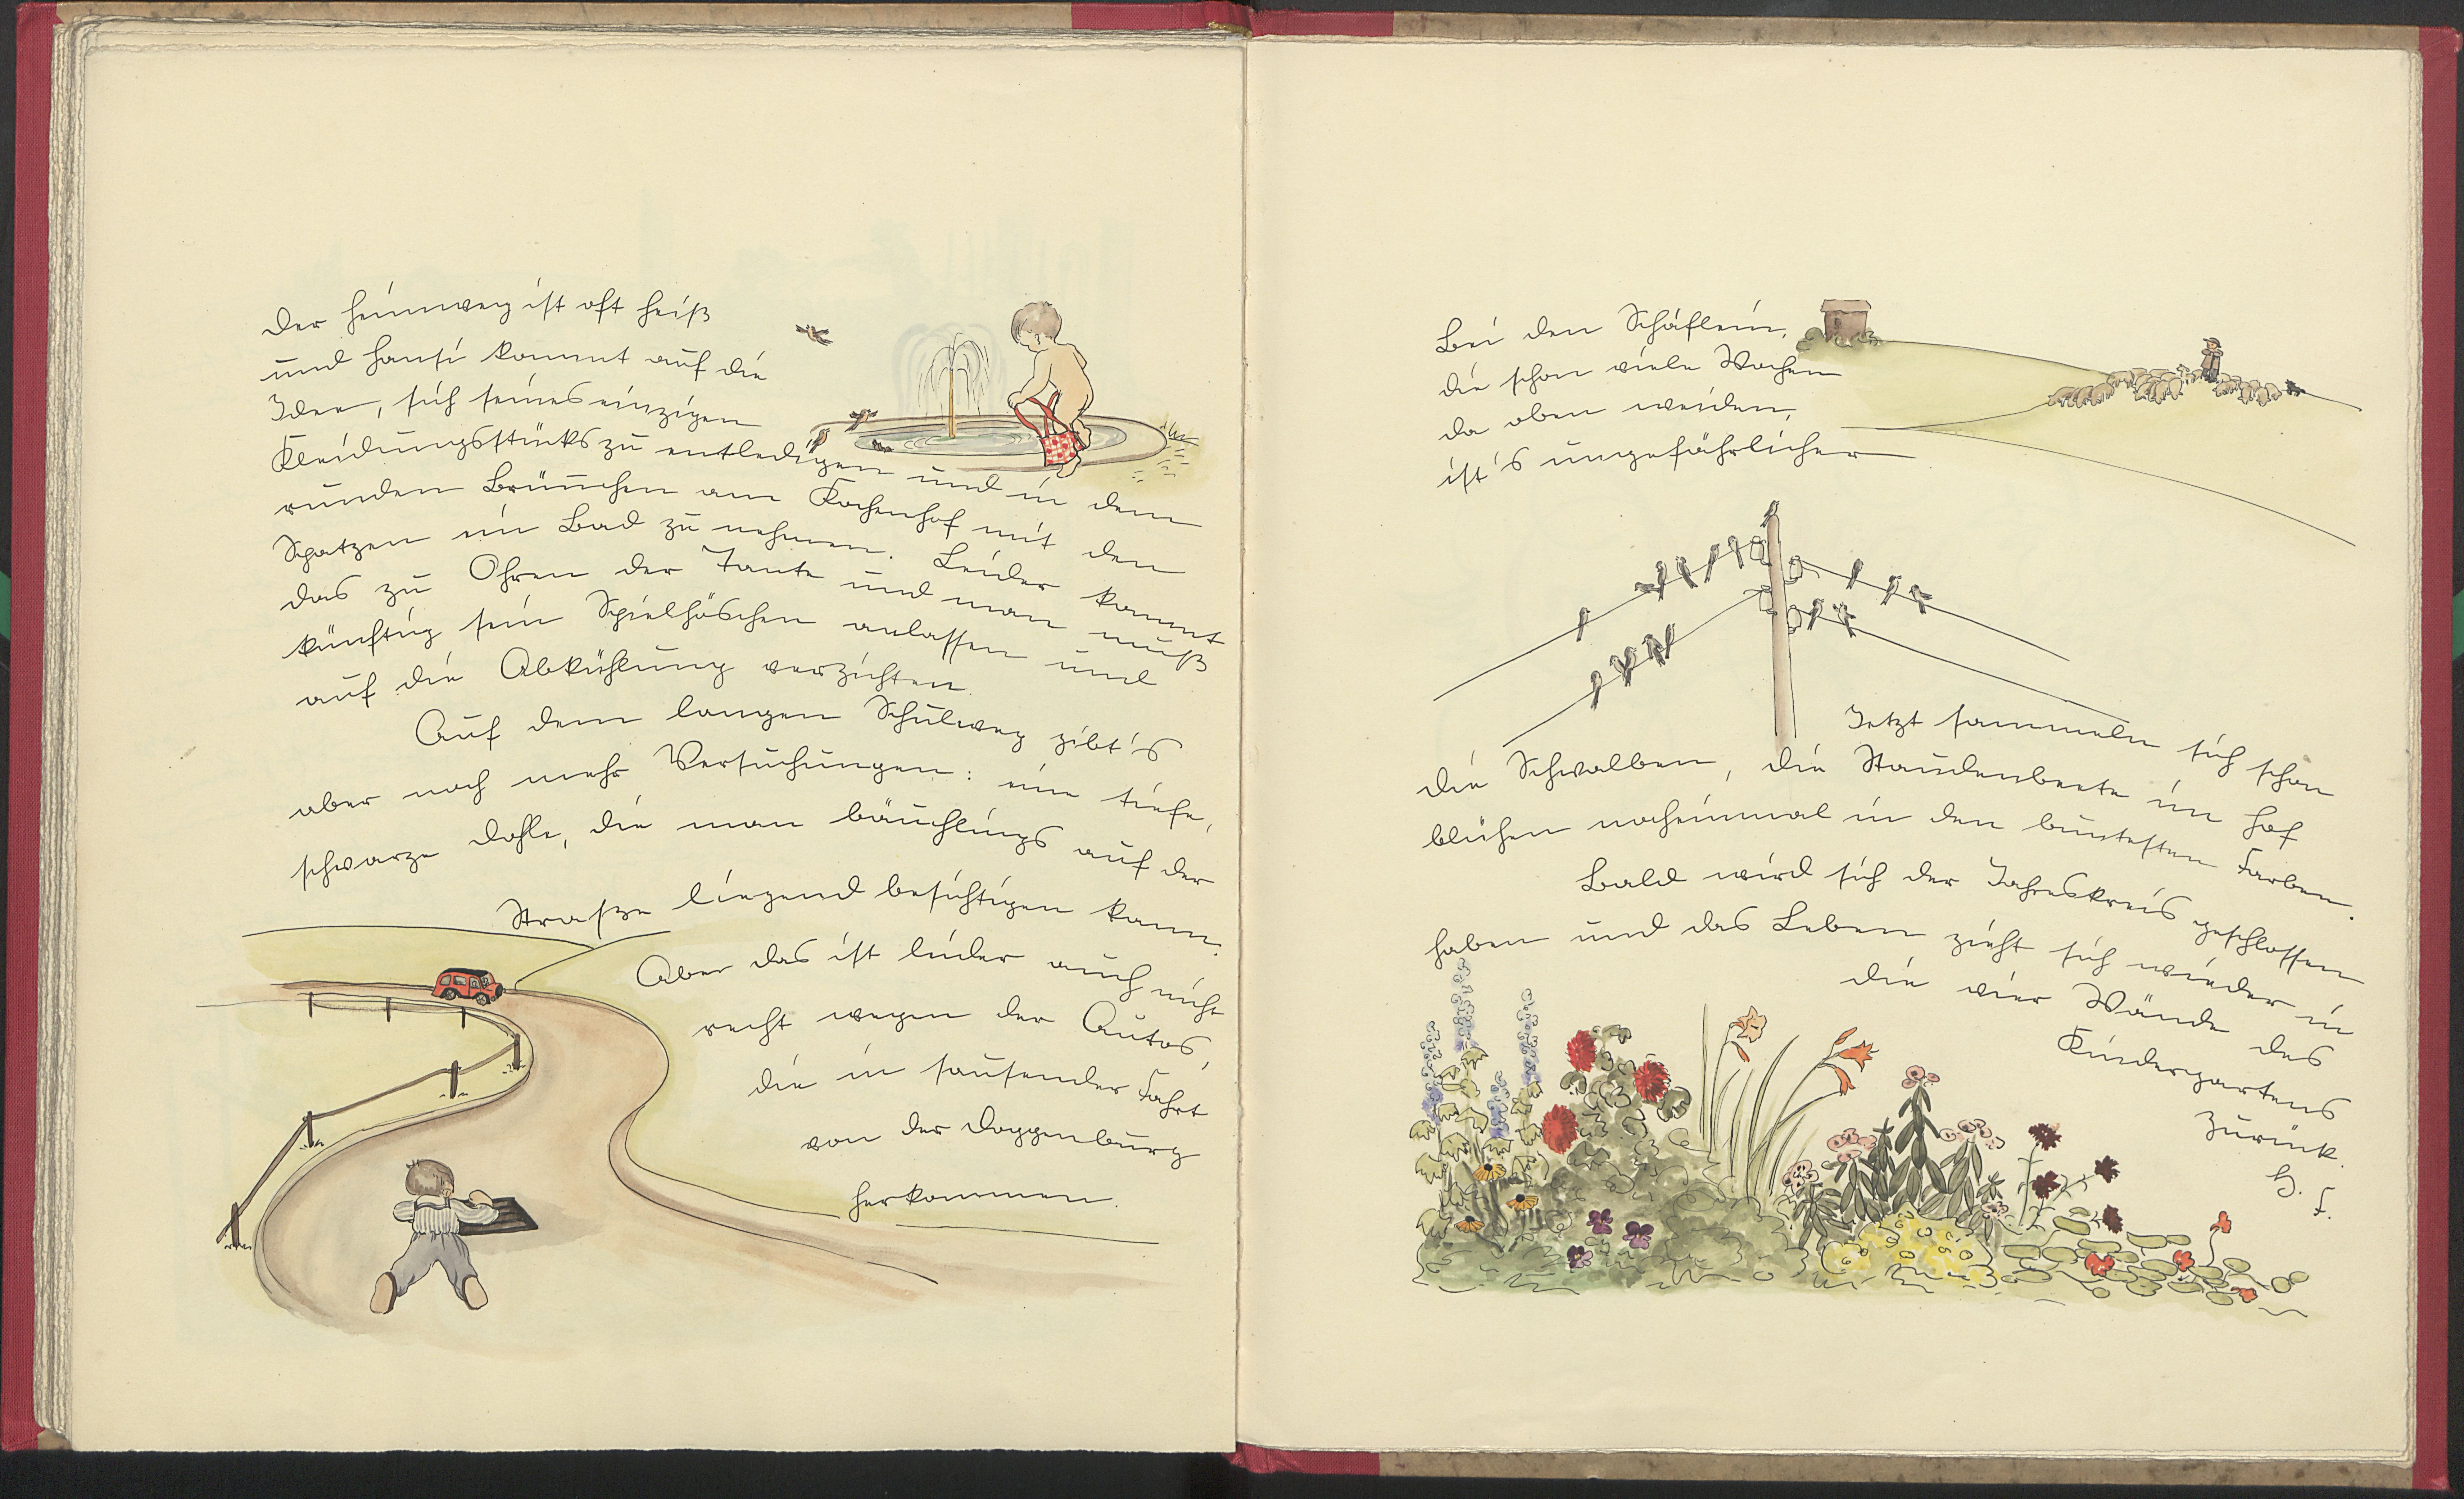 Der Heimweg ist oft heiß
und Hansi kommt auf die
Idee, sich seines einzigen
Kleidungsstücks zu entledigen und in dem
runden Brünnchen am Kochenhof mit den
Spatzen ein Bad zu nehmen. Leider kommt
das zu Ohren der Tante und man muß
künftig sein Spielhöschen anlassen und
auf die Abkühlung verzichten.
Auf dem langen Schulweg gibt's
aber noch mehr Versuchungen: eine tiefe,
schwarze Dohle, die man bäuchlings auf der
Strasze liegend besichtigen kann.
Aber das ist leider auch nicht
recht wegen der Autos,
die in sausender Fahrt
von der Doggenburg
herkommen.
Bei den Schäflein,
die schon viele Wochen
da oben weiden,
ist's ungefährlicher
Jetzt sammeln sich schon
die Schwalben, die Staudenbeete im Hof
blühen nocheinmal in den buntesten Farben.
Bald wird sich der Jahreskreis geschlossen
haben und das Leben zieht sich wieder in
die vier Wände des
Kindergartens
zurück.
H. F.